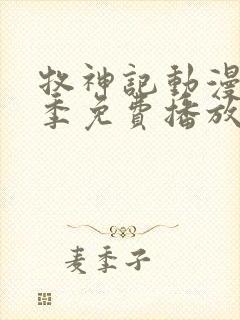 牧神記動漫
季免費播放
麦季子